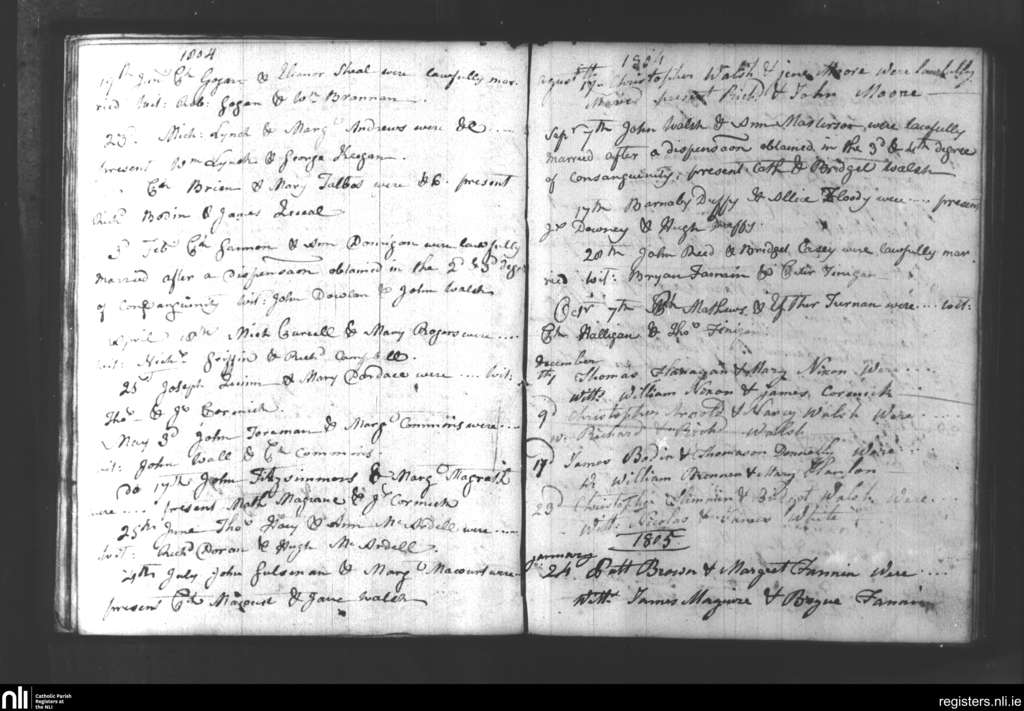 1804
19th Jany Ch Gogan & Eleanor Sheal were lawfully mar-
ried wit: Rob: Gogan & Wm Brannan.
23d. Mich: Lynch & Marg Andrews were &c ....
present Wm Lynch & George Keegan.
Ch Brien & Mary Talbot were &c. present
Richd Bodin & James
3d Feb Ch Gannon & Ann Dannigan were lawfully
married after a Dispensaon obtained in the 2d & 3d degre
of Consanguinity wit: John Dowlan & John Walsh
April 18th Mich Curcell & Mary Rogers were ....
wit: Nichs Griffin & Richd Campbell.
25th Joseph Quinn & Mary Cordace were .... wit:
Thos & Js Cormick.
May 3d John Foreman & Margt Commins were ...
wit: John Wall & Ch Commins.
Do 17th John Fitzsimmons & Margt Magrath
were .... present Math Magrane & Js Cormick
25th June Thos & Ann McArdell were ....
wit: Richd Doran & Hugh McArdell.
29th July John Fulsman & Margt were
present Ch & Jane Walsh
1804
August 17th Christophar Walsh & jene Moore were lawfully
Maried present Richd & John Moore
Sepr 7th John Walsh & Ann Masterson were lawfully
married after a dispensaon obtained in the 3d & 4th degree
of Consanguinity; present Cath & Bridget Walsh
17th Barnaby Duffy & Allice Floody were .... present
Js Downey & Hugh Duffy.
28th John Reed & Bridget Casey were lawfully mar-
ried wit: Bryan Farrain & Peter Finigan
Octr 7th Mathews & Esther Turnan were ... wit:
Ch Halligan & Thos Finigan
December
Thomas Flanagan & Mary Nixon Were ....
Witts William Nixon & james Coremick
9d Christopher Arnold & Nancy Walsh Were ....
W: Richard & Richd Walsh
17 James Bodin & Thomason Donnelly Were ....
W William Brennan & Mary Hanlon
23d Christopher & Bridget Walsh Were ....
Witt: Nicolas & White
1805
january
24. Patt Brown & Margret Fannin Were ....
Witts James Maguire & Bryne Fanain
nli
Catholic Parish
Registers at
the NLI
registers.nli.ie